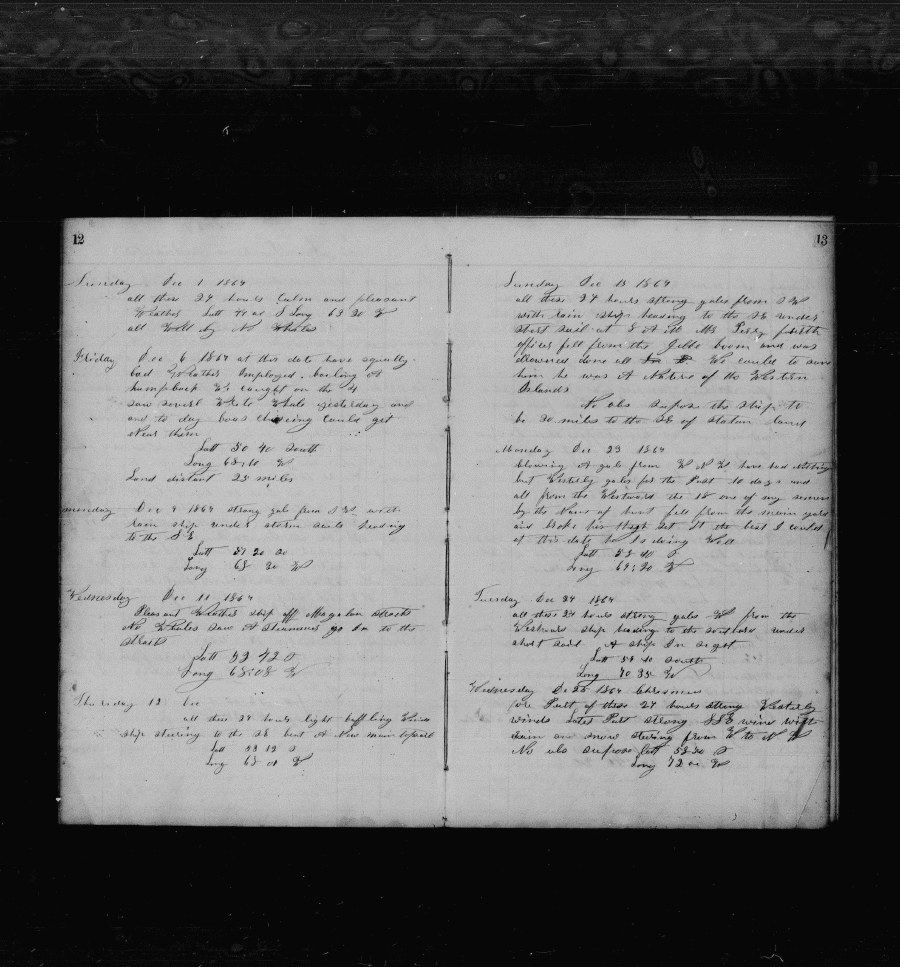 12
Sunday Dec 1 1864
all these 24 hours Calm and pleasant
Weather Latt 41 S Long 63 20 W
all Well by No Whales
Friday Dec 6 1864 at this date have squally
bad Weather Imployed boiling A
humpback W caught on the 4
saw severl Whale yesterday and
and to day boas chaseing Could get
Near them
Latt 50 40 South
Long 65:10 W
Land distant 25 miles
monday Dec 9 1864 strong gale from S W west
rain ship under storm sails heading
to the S E
Latt 51 20 00
Long 65 20 W
Wednesday Dec 11 1864
Pleasant Weather ship off Magelan Straits
No Whales Saw A Steammer go In to the
Straits
Latt 52 42 S
Long 68:08 W
Thursday 12 Dec
all these 24 hours light baffling Winds
ship steering to the SE bent A New main topsail
Latt 53 12 S
Long 65 01 W
13
Sunday Dec 15 1864
all these 24 hours strong gales from S W
with rain ship heading to the SE under
short sail at 8 A M Mr Perry fourth
officer fell from the Gibb boom and was
drowned done all We could to save
him he was A Native of the Western
Islands
No obs supose the ship to
be 30 miles to the SE of Staten land
Monday Dec 23 1864
blowing A gale from W N W have had Nothing
but Westerly gales for the Past 10 days and
all from the Westward the 18 one of my seamen
by the Name of fell from the main yard
and broke his thigh Set It the best I could
at this date he Is doing Well
Latt 58 40 S
Long 69:20 W
Tuesday Dec 24 1864
all these 24 hours strong gales W from the
Westward ship heading to the southard under
short sail A ship In sight
Latt 58 40 South
Long 70 35 W
Wednesday De 25 1864 Chrismas
fore Part of these 24 hours strong Westerly
winds Later Part strong SSE wind with
rain an snow steering from W to N W
No obs supose Latt 58 30 S
Long 72 00 W